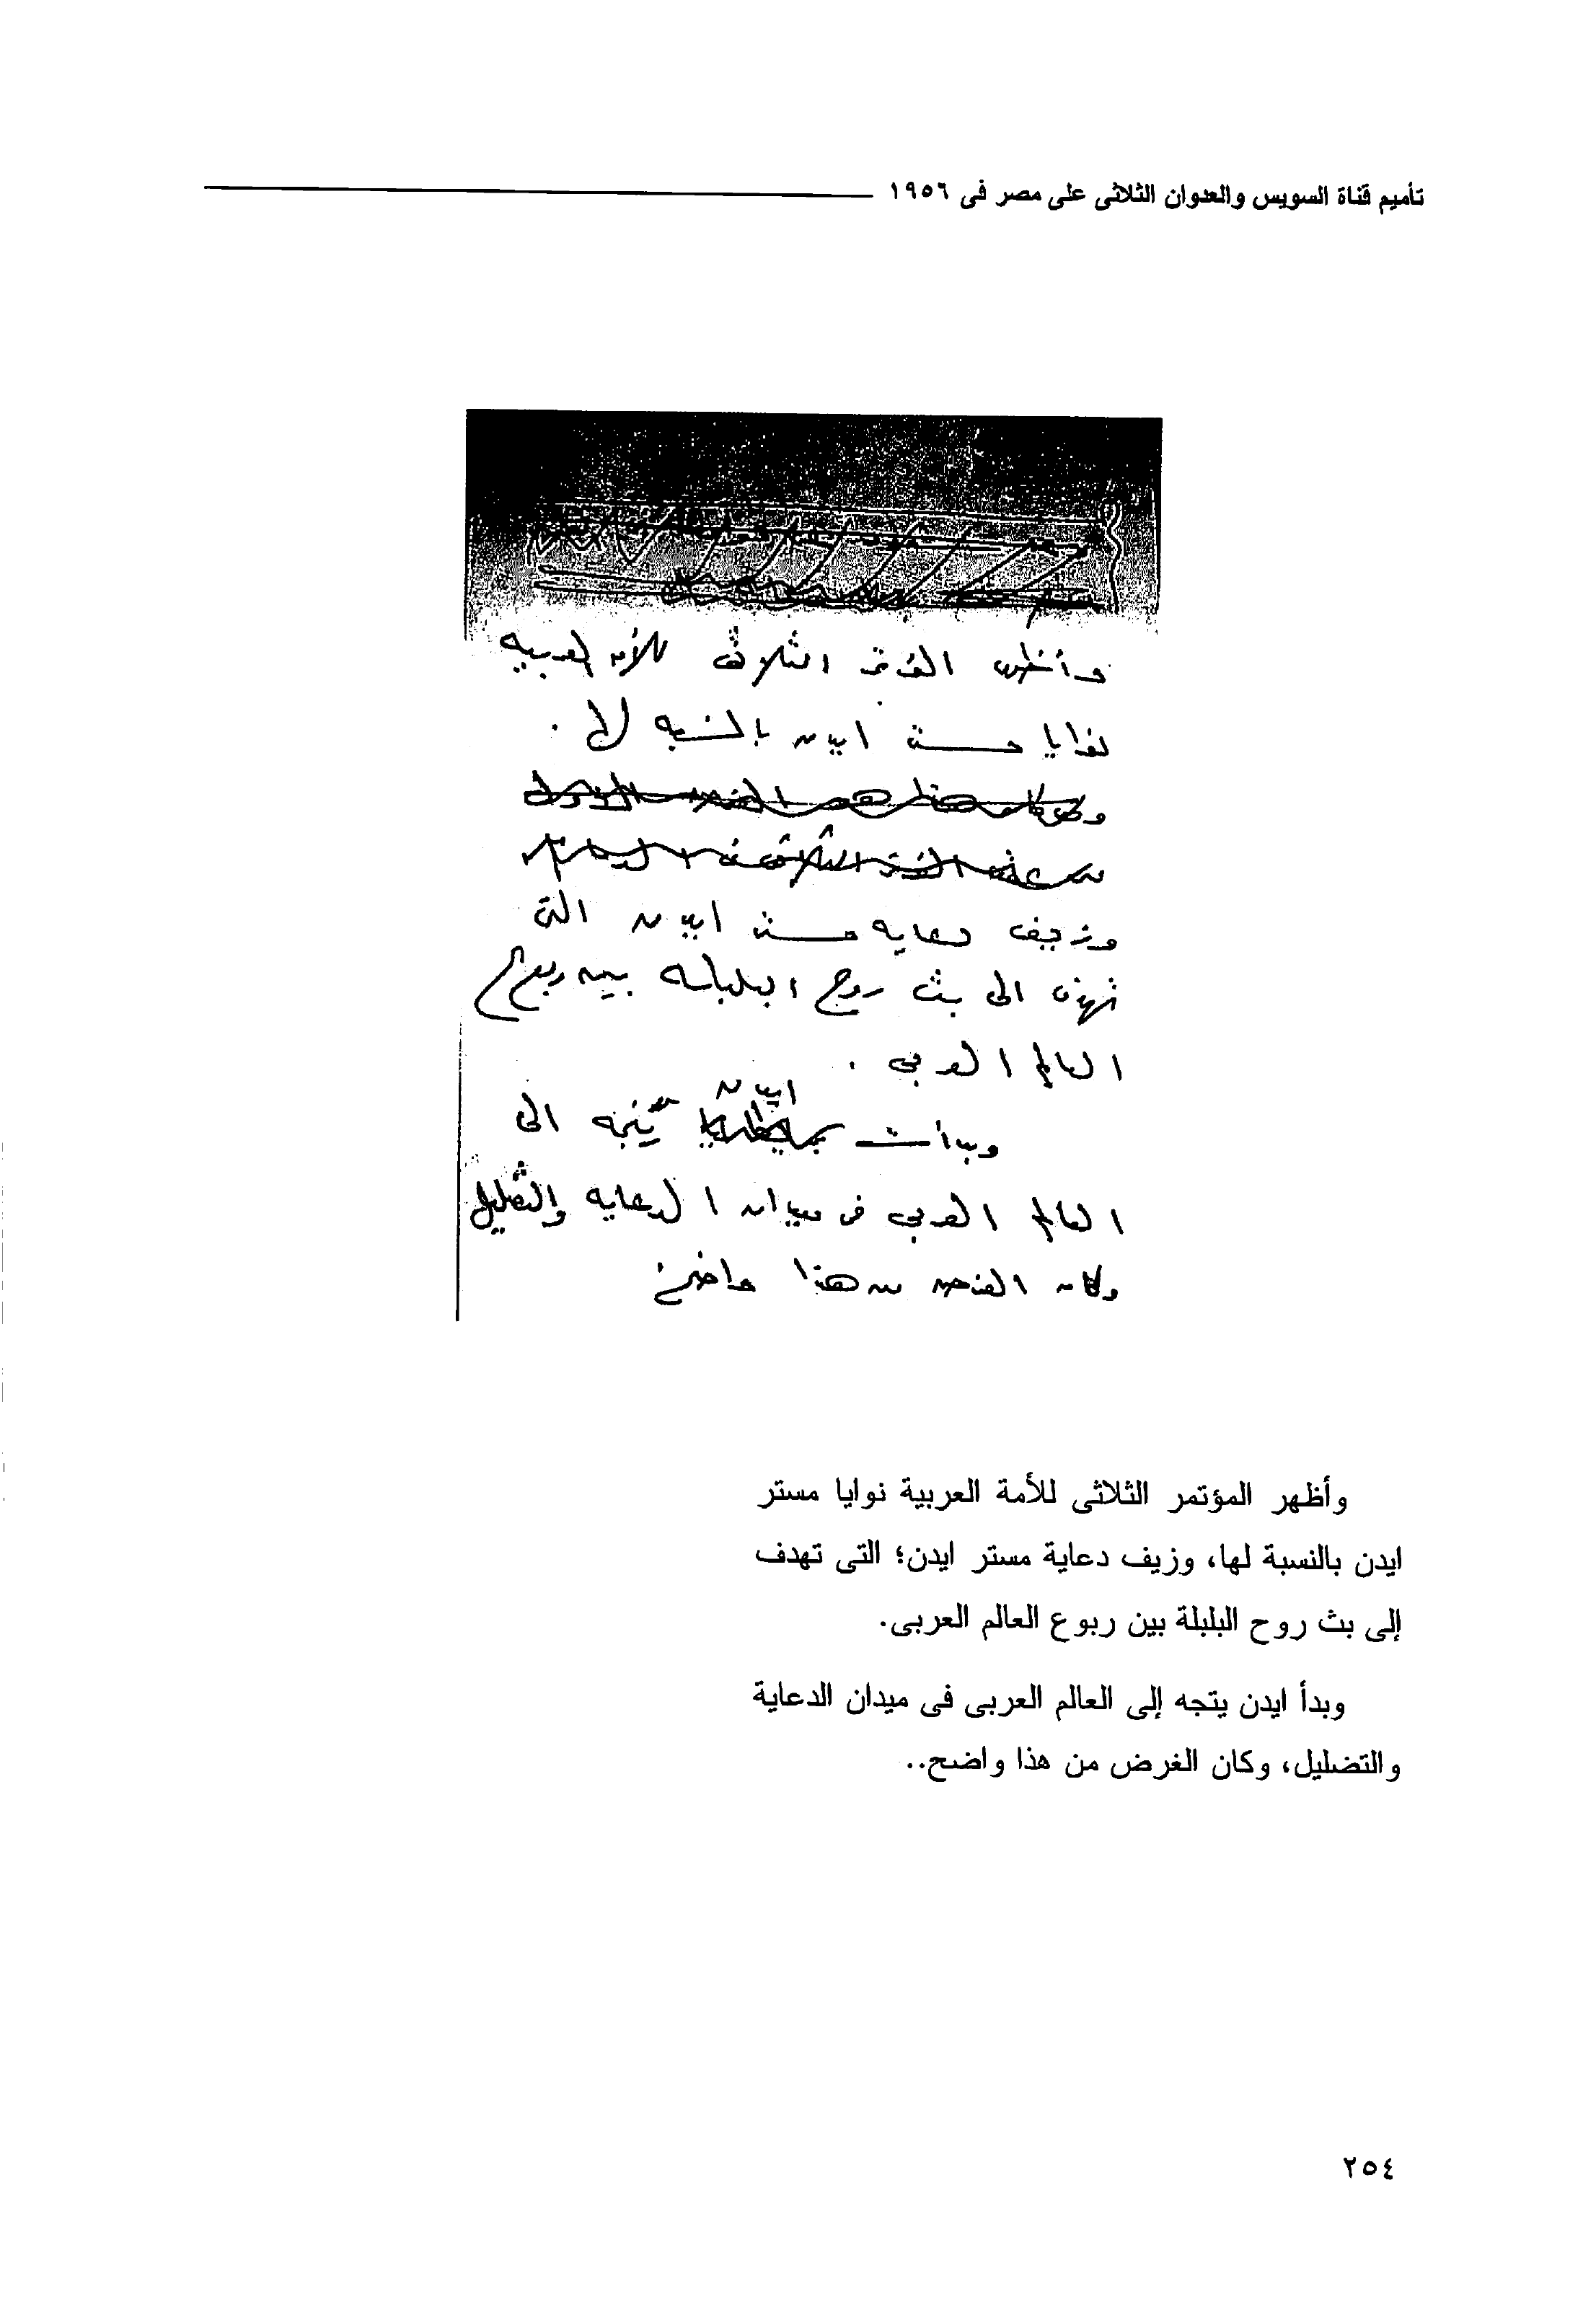 تأميم قناة السويس والعدوان الثلاثى على مصر فى ١٩٥٦
وأظهر المؤتمر الثلاثى للأمه العربيه
نوايا مستر ايدن بالنسبه لها .
وزيف دعايه مستر ايدن التى
تهدف الى بث روح البلبله بين ربوع
العالم العربى .
وبدأت ايدن يتجه الى
العالم العربى فى ميدان الدعايه والتضليل
وكان الغرض من هذا واضح
وأظهر المؤتمر الثلاثى للأمة العربية نوايا مستر
ايدن بالنسبة لها، وزيف دعاية مستر ايدن؛ التى تهدف
إلى بث روح البلبلة بين ربوع العالم العربى.
وبدأ ايدن يتجه إلى العالم العربى فى ميدان الدعاية
والتضليل، وكان الغرض من هذا واضح..
٢٥٤